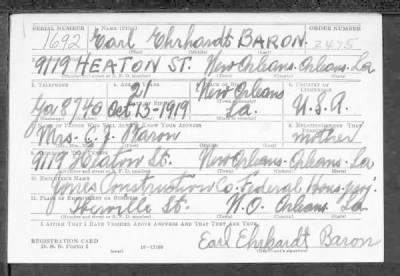 SERIAL NUMBER 1. NAME (Print) ORDER NUMBER
1692 Earl Ehrhardt BARON. 2475
(First) (Middle) (Last)
9179 HEATON ST. New Orleans. Orleans. La
3. TELEPHONE 4. AGE IN YEARS 5. PLACE OF BIRTH 6. COUNTRY OF CITIZENSHIP
21 New Orleans
8740 Oct. 13, 1919 La. U.S.A.
7. NAME OF PERSON WHO WILL ALWAYS KNOW YOUR ADDRESS 8. RELATIONSHIP OF THAT PERSON
Mrs. Baron mother
9179 Heaton St. New Orleans. Orleans. La
10. EMPLOYER'S NAME
Jones Construction Co. Federal Hous. proj.
11. PLACE OF EMPLOYMENT OR BUSINESS
Iberville St. N.O. Orleans La
I AFFIRM THAT I HAVE VERIFIED ABOVE ANSWERS AND THAT THEY ARE TRUE.
REGISTRATION CARD
D. S. S. Form 1 (over) 16—17105 Earl Ehrhardt Baron